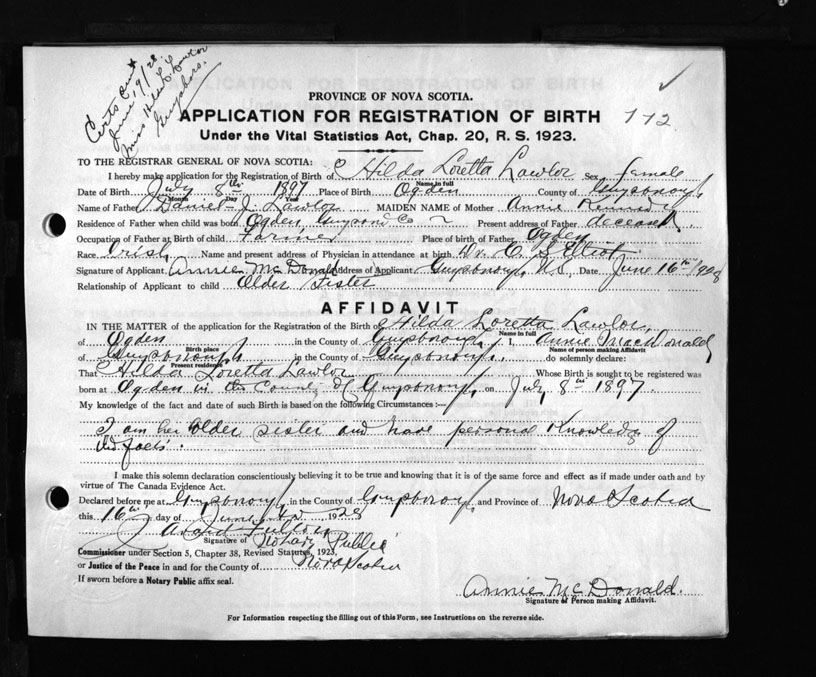 Certs cut
June 19/28
Miss Hilda L. Lawlor
Guysboro.
PROVINCE OF NOVA SCOTIA.
APPLICATION FOR REGISTRATION OF BIRTH
112
Under the Vital Statistics Act, Chap. 20, R. S. 1923.
TO THE REGISTRAR GENERAL OF NOVA SCOTIA:
I hereby make application for the Registration of Birth of Hilda Loretta Lawlor Sex female
Name in full
Date of Birth July 8th 1897 Place of Birth Ogden County of Guysboro
Month Day Year
Name of Father Daniel J. Lawlor MAIDEN NAME of Mother Annie
Residence of Father when child was born Ogden, Guysboro Co Present address of Father deceased
Occupation of Father at Birth of child Farmer Place of birth of Father Ogden
Race Irish Name and present address of Physician in attendance at birth Dr. C. S. Elliot
Signature of Applicant Annie McDonald Address of Applicant Guysboro, N.S. Date June 16th 1928
Relationship of Applicant to child Older Sister
AFFIDAVIT
IN THE MATTER of the application for the Registration of the Birth of Hilda Loretta Lawlor,
Name in full
of Ogden in the County of Guysboro, I, Annie MacDonald
Birth place Name of person making Affidavit
of Guysborough in the County of Guysboro, do solemnly declare:
Present residence
That Hilda Loretta Lawlor Whose Birth is sought to be registered was
born at Ogden in the County of Guysboro, on July 8th 1897.
My knowledge of the fact and date of such Birth is based on the following Circumstances :—
I am her older sister and have personal knowledge of
facts.
I make this solemn declaration conscientiously believing it to be true and knowing that it is of the same force and effect as if made under oath and by
virtue of The Canada Evidence Act.
Declared before me at Guysboro, in the County of Guysboro, and Province of Nova Scotia
this 16th day of June 1928
Fulton
Signature of Notary Public
Commissioner under Section 5, Chapter 38, Revised Statutes, 1923,
or Justice of the Peace in and for the County of Nova Scotia
If sworn before a Notary Public affix seal.
Annie McDonald.
Signature of Person making Affidavit.
For Information respecting the filling out of this Form, see Instructions on the reverse side.